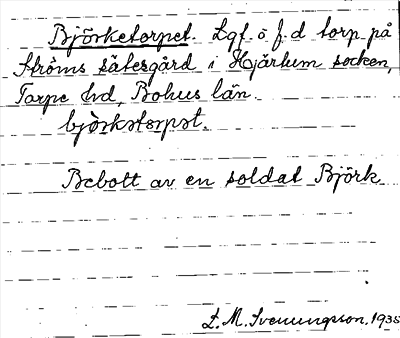 Björketorpet. Lgf. o. f.d torp på
Ströms sätesgård i Hjärtum socken,
Torpe hd, Bohus län.
björkətorpət.
Bebott av en soldat Björk
L. M. Svenungsson. 1935